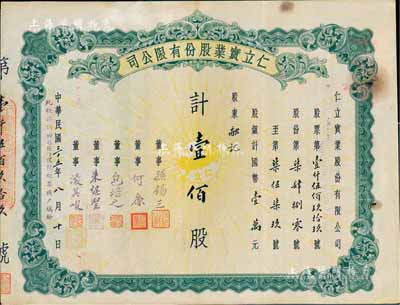 仁立實業股份有限公司
仁立實業股份有限公司
股票第壹仟伍佰玖拾玖號
股份第柒肆捌零號
至第柒伍柒玖號
股東
股銀計國幣壹萬元
計壹佰股
董事孫錫三
董事何廉
董事包培之
董事朱繼聖
董事凌其峻
中華民國三十五年八月十日
第壹仟伍佰玖拾玖號